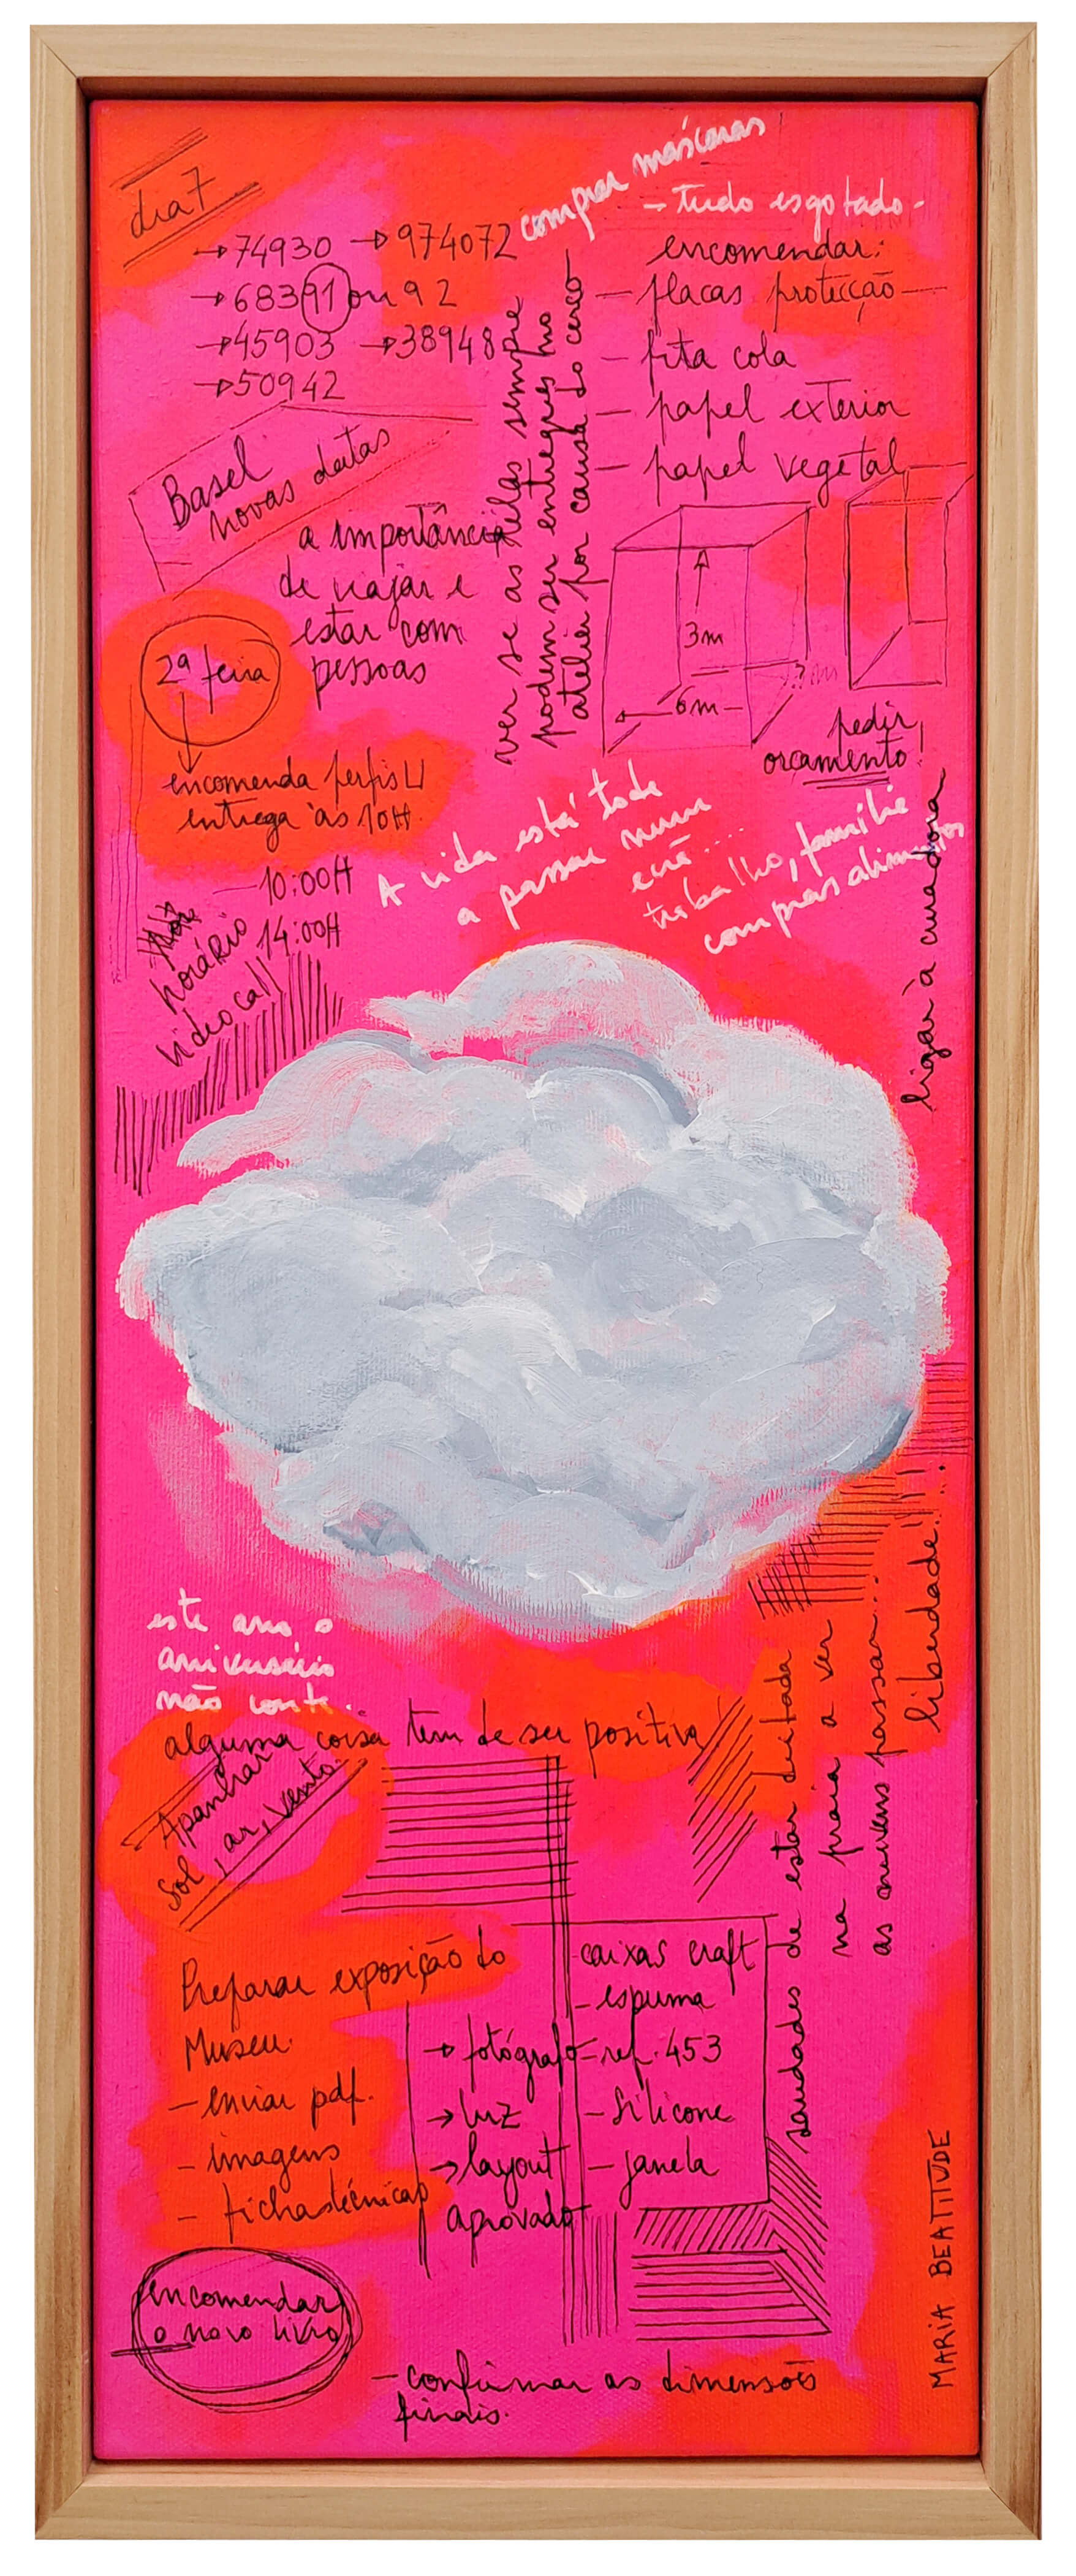 dia 7
→74930 →974072
→68391 ou 92
→45903 →38948
→50942
comprar máscaras
→ tudo esgotado -
encomendar:
— placas protecção —
— fita cola
— papel exterior
— papel vegetal
ver se as telas sempre
podem ser entregues no
atelier por causa do cerco
Basel
novas datas
a importância
de viajar e
estar com
pessoas
2ª feira
encomenda perfis U
entrega às 10H.
3m
6m
3m
pedir
orçamento!
A vida está toda
a passar num
ecrã....
trabalho, família
compras alimentos
ligar à curadora
— 10:00H
14:00H
horário
videocall
este ano o
aniversário
não conta.
alguma coisa tem de ser positiva
Apanhar
sol, ar, vento
saudades de estar deitada
na praia a ver
as nuvens passar...
liberdade!...
Preparar exposição do
Museu.
— enviar pdf.
— imagens
— fichas técnicas
→ fotógrafo
→ luz
→ layout
aprovado
- caixas craft
- espuma
- ref. 453
- silicone
- janela
encomendar
o novo livro
— confirmar as dimensões
finais.
MARIA BEATITUDE